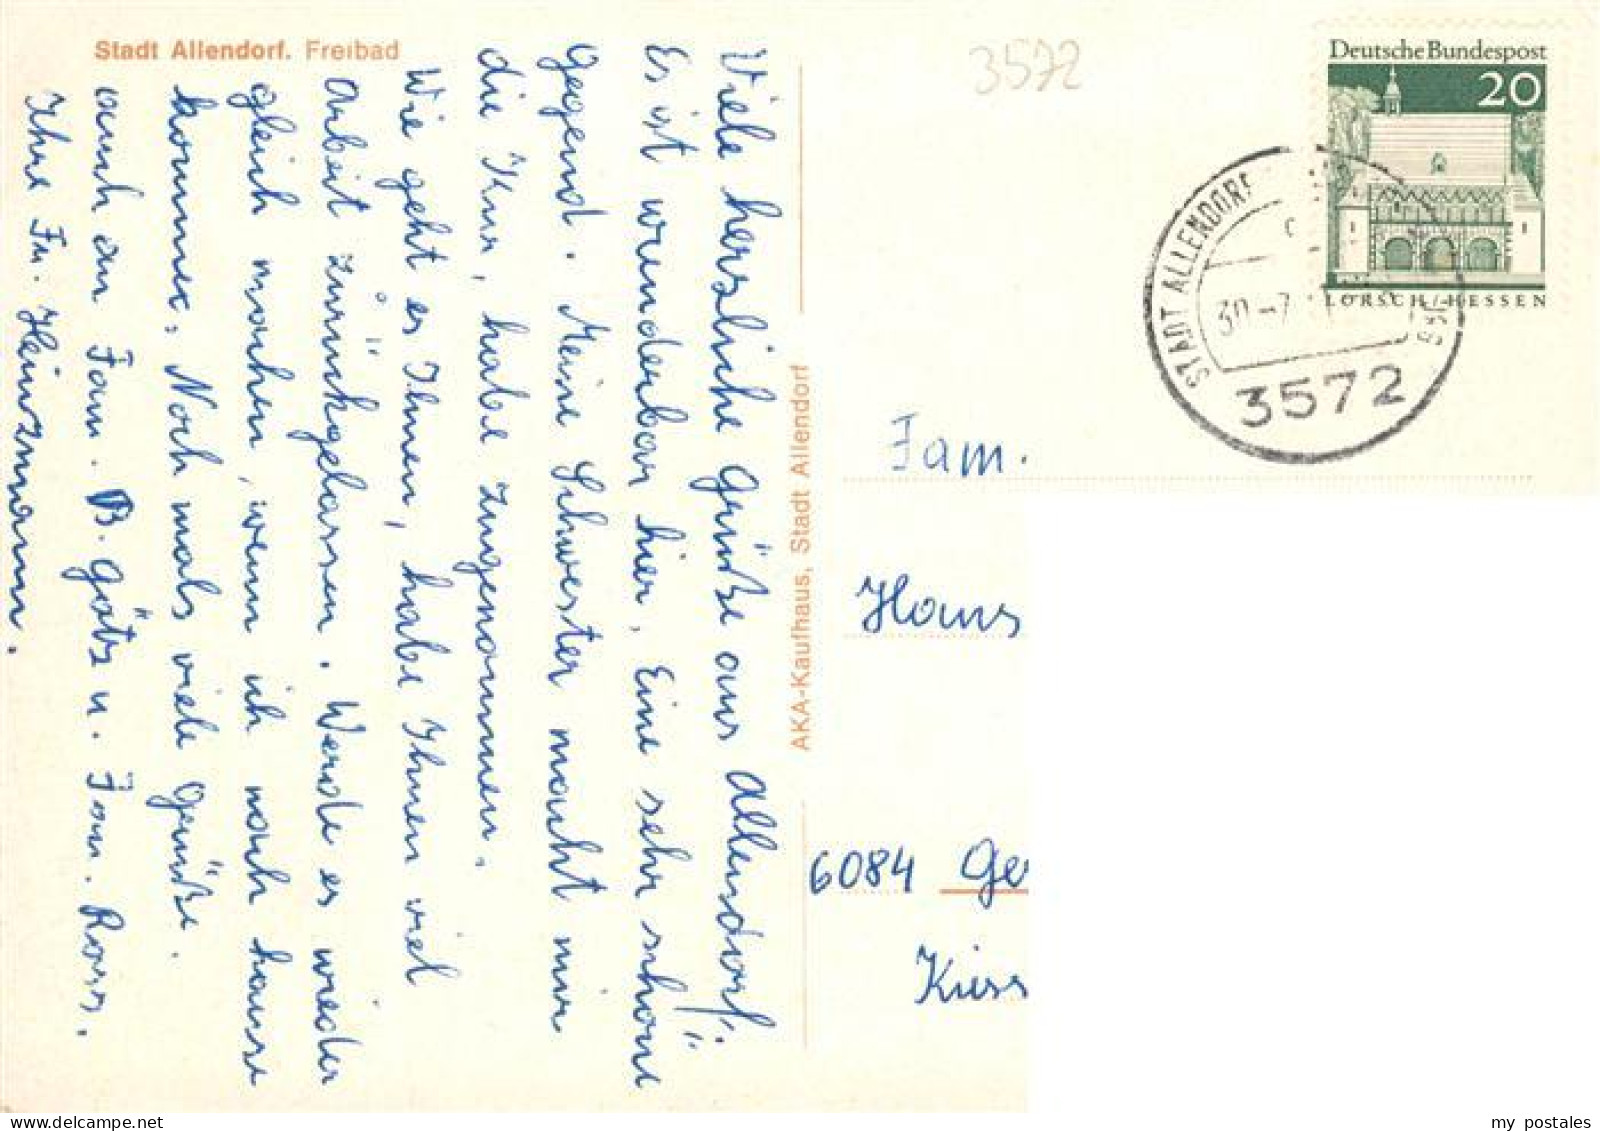 Stadt Allendorf. Freibad
Viele herzliche Grüße aus Allendorf.
Es ist wunderbar hier. Eine sehr schöne
Gegend. Meine Schwester macht mir
die Kur, habe zugenommen.
Wie geht es Ihnen, habe Ihnen viel
Arbeit zurückgelassen. Werde es wieder
gleich machen, wenn ich nach hause
komme. Noch mals viele Grüße.
auch an Fam. B. Götz u. Fam. Ross.
Ihre Fr. Heinzmann.
AKA-Kaufhaus, Stadt Allendorf
3572
Deutsche Bundespost
20
LORSCH/HESSEN
STADT ALLENDORF
30.-7
3572
Fam.
Hans
6084 Ge
Kiess
my postales